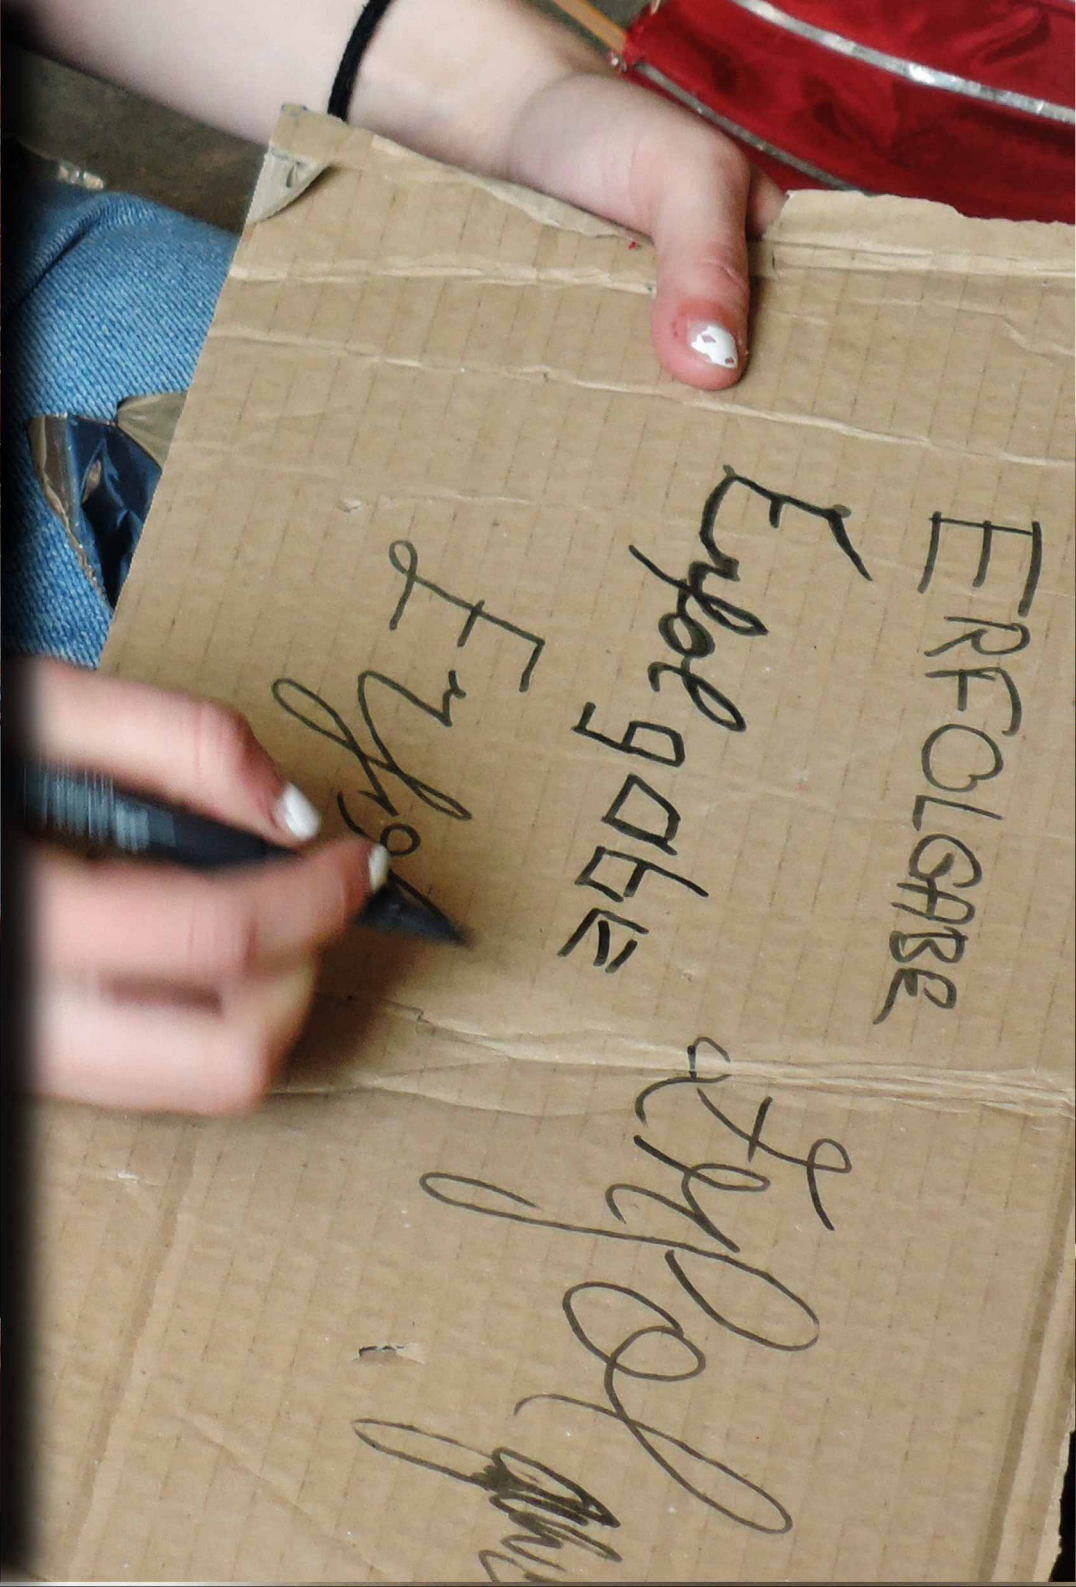 ERFOLGABE
Erfolgabe
Erfol
Erfol